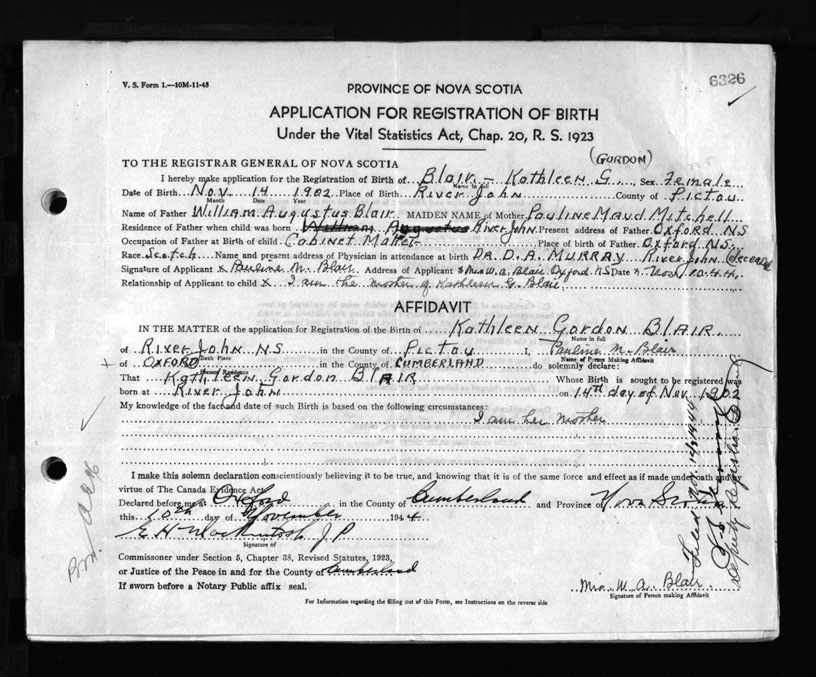 6326
V. S. Form 1.—10M-11-43
PROVINCE OF NOVA SCOTIA
APPLICATION FOR REGISTRATION OF BIRTH
Under the Vital Statistics Act, Chap. 20, R. S. 1923
(GORDON)
TO THE REGISTRAR GENERAL OF NOVA SCOTIA
I hereby make application for the Registration of Birth of Blair - Kathleen G. Sex Female
Name in full
Date of Birth Nov. 14 1902 Place of Birth River John County of Pictou
Month Date Year
Name of Father William Augustus Blair MAIDEN NAME of Mother Pauline Maud Mitchell
Residence of Father when child was born William Augustus River John Present address of Father Oxford NS
Occupation of Father at Birth of child Cabinet Maker Place of birth of Father Oxford N.S.
Race Scotch Name and present address of Physician in attendance at birth DR. D. A. MURRAY River John (deceased
Signature of Applicant x Pauline M. Blair Address of Applicant x Mrs W. A. Blair Oxford NS Date x Nov. 20.44.
Relationship of Applicant to child x I am the mother of Kathleen G. Blair
AFFIDAVIT
IN THE MATTER of the application for Registration of the Birth of Kathleen Gordon BLAIR
Name in full
of River John NS in the County of Pictou I, Pauline M. Blair
Birth Place Name of Person Making Affidavit
+ of OXFORD in the County of CUMBERLAND do solemnly declare:
Present Residence
That Kathleen Gordon BLAIR Whose Birth is sought to be registered was
born at River John on 14th day of Nov. 1902
My knowledge of the fact and date of such Birth is based on the following circumstances:
I am her mother
I make this solemn declaration conscientiously believing it to be true, and knowing that it is of the same force and effect as if made under oath and by
virtue of The Canada Evidence Act.
Declared before me at Oxford in the County of Cumberland and Province of Nova Scotia
this 20th day of November 1944
E. H. Mackintosh J.P.
Signature of
Commissioner under Section 5, Chapter 38, Revised Statutes, 1923,
or Justice of the Peace in and for the County of Cumberland
If sworn before a Notary Public affix seal.
Mrs. W. A. Blair
Signature of Person making Affidavit
For Information regarding the filling out of this Form, see Instructions on the reverse side
Deputy Registrar